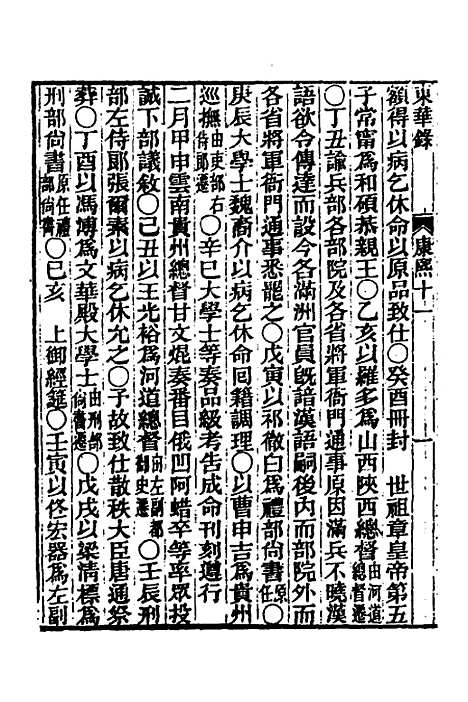 東華錄　康熙十一　一
額得以病乞休命以原品致仕○癸酉冊封　世祖章皇帝第五
子常甯爲和碩恭親王○乙亥以羅多爲山西陝西總督由河道總督遷
○丁丑諭兵部各部院及各省將軍衙門通事原因滿兵不曉漢
語欲令傳達而設今各滿洲官員旣諳漢語嗣後內而部院外而
各省將軍衙門通事悉罷之○戊寅以祁徹白爲禮部尚書原任○
庚辰大學士魏裔介以病乞休命回籍調理○以曹申吉爲貴州
巡撫由吏部右侍郎遷○辛巳大學士等奏品級考告成命刊刻遵行
二月甲申雲南貴州總督甘文焜奏番目俄凹阿蜡卒等率眾投
誠下部議敘○己丑以王光裕爲河道總督由左副都御史遷○壬辰刑
部左侍郎張爾素以病乞休允之○予故致仕散秩大臣唐通祭
葬○丁酉以馮溥爲文華殿大學士由刑部尚書遷○戊戌以梁清標爲
刑部尚書原任禮部尚書○己亥　上御經筵○壬寅以佟宏器爲左副